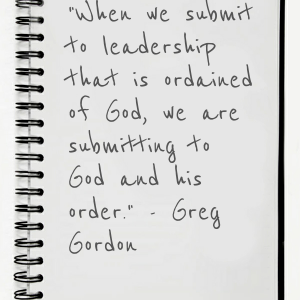 "When we submit
to leadership
that is ordained
of God, we are
submitting to
God and his
order." - Greg
Gordon